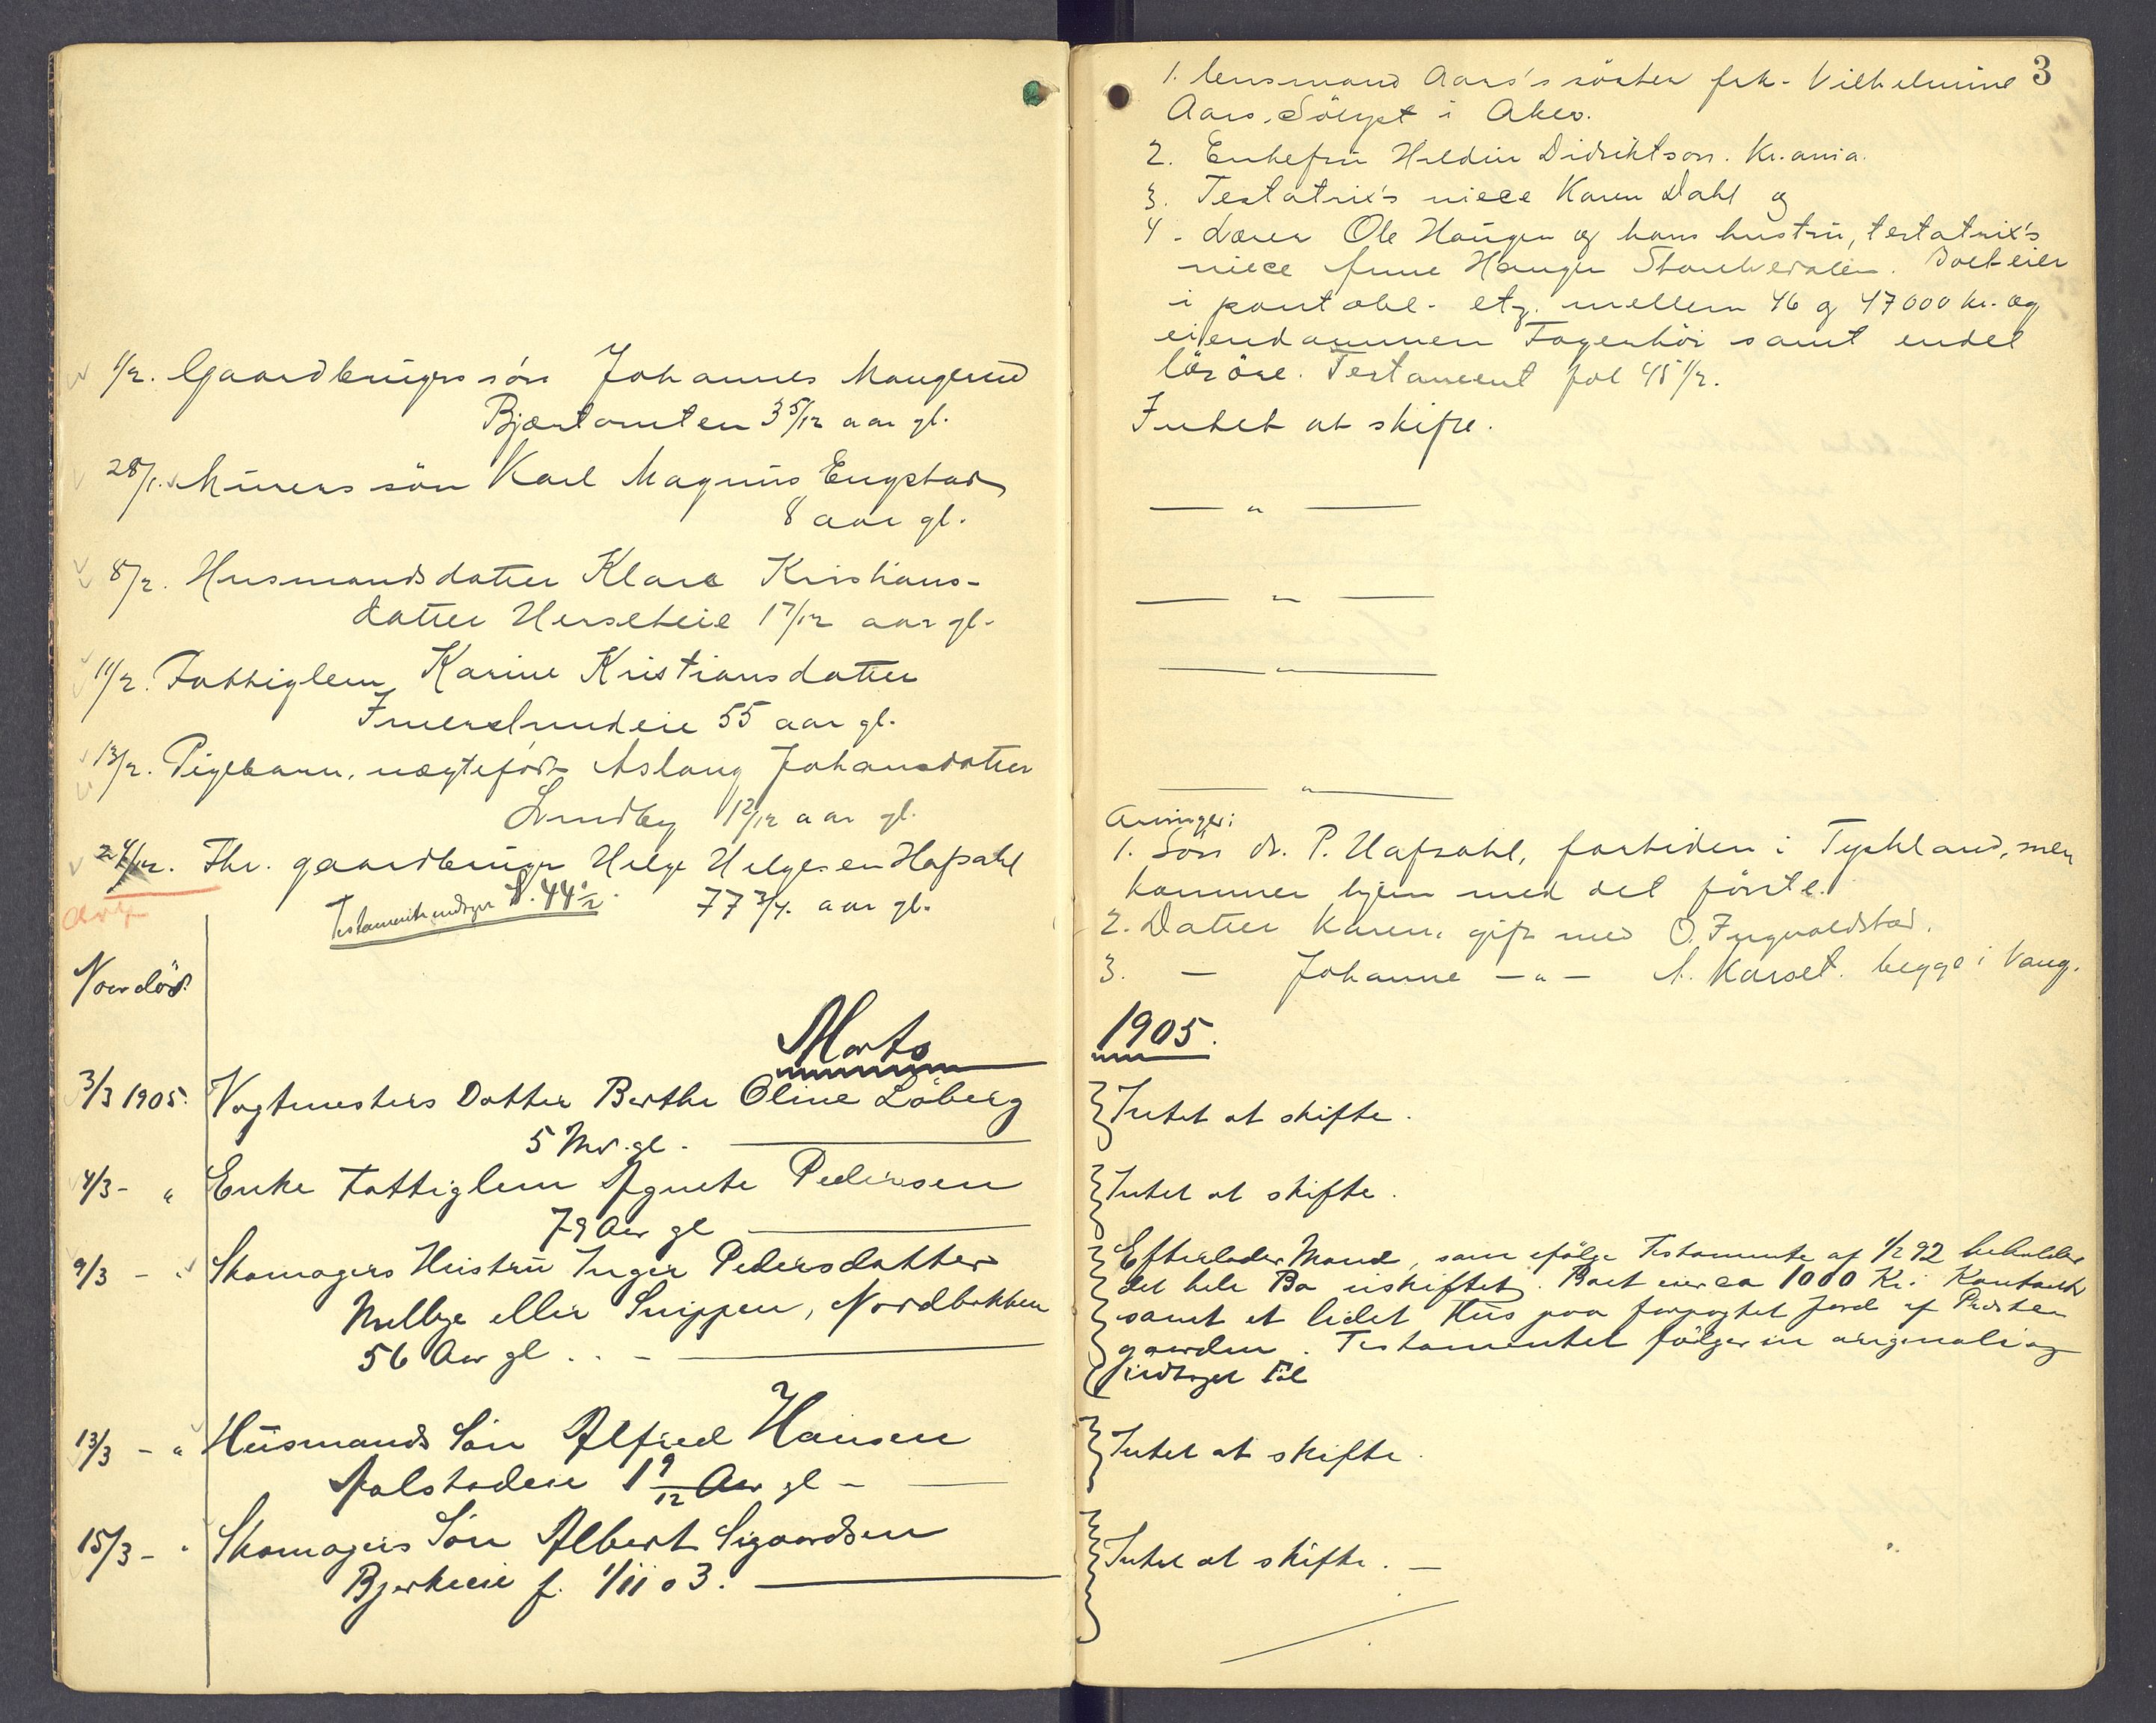 1/2. Gaardbrugers sön Johannes Mangerud
Bjørtomten 3 5/12 aar gl.
28/1. Murers sön Karl Magnus Engstad
8 aar gl.
8/2. Husmandsdatter Klara Kristians-
datter Herseteie 1 7/12 aar gl.
11/2. Fattiglem Karine Kristiansdatter
55 aar gl.
13/2. Pigebarn, uægtefödt Aslaug Johansdatter
Lundby 1 2/12 aar gl.
24/2. Fhr. gaardbruger Helge Helgesen Hafsahl
Testamente S. 44 1/2. 77 3/4. aar gl.
Naar död.
Marts
3/3 1905. Vogtmesters Datter Berthe Oline Löberg
5 Md. gl.
4/3 - " Enke Fattiglem Agnete Pedersen
79 Aar gl
9/3 - " Skomagers Hustru Inger Pedersdatter
Melbye eller Snippen, Nordbakken
56 Aar gl . . -
13/3 - " Husmands Sön Alfred Hansen
Aalstadeie 1 9/12 Aar gl -
15/3 - " Skomagers Sön Albert Sigaardsen
Bjerkeeie f. 1/11 03.
3
1. Lensmand Aars's söster frk. Vilhelmine
Aars, Sölyst i Aker.
2. Enkefru Didriktson. Kr.ania.
3. Testatrix's niece Karen Dahl og
4. Lærer Ole Haugen og hans hustru, testatrix's
niece Haugen. Boet eier
i pantobl. etz. mellem 46 og 47000 kr. og
eiendommen Fagerhöi samt endel
lösöre. Testament fol 45 1/2.
Intet at skifte.
— " —
— " —
— " —
— " —
Arvinger:
1. Sön dr. P. Hafsahl, fortiden i Tyskland, men
kommer hjem med det förste.
2. Datter Karen, gift med O. Ingvaldstad.
3. — Johanne — " — A. Karset. begge i Vang.
1905.
Intet at skifte.
Intet at skifte.
Efterlader Mand, som ifölge Testamente af 1/2 92 beholder
det hele Bo uskiftet. Boet eier ca 1000 Kr. i Kontanter
samt et lidet Hus paa forpagtet Jord af Præste
gaarden. Testamentet fölger in originali og
indtaget Fol
Intet at skifte.
Intet at skifte. —